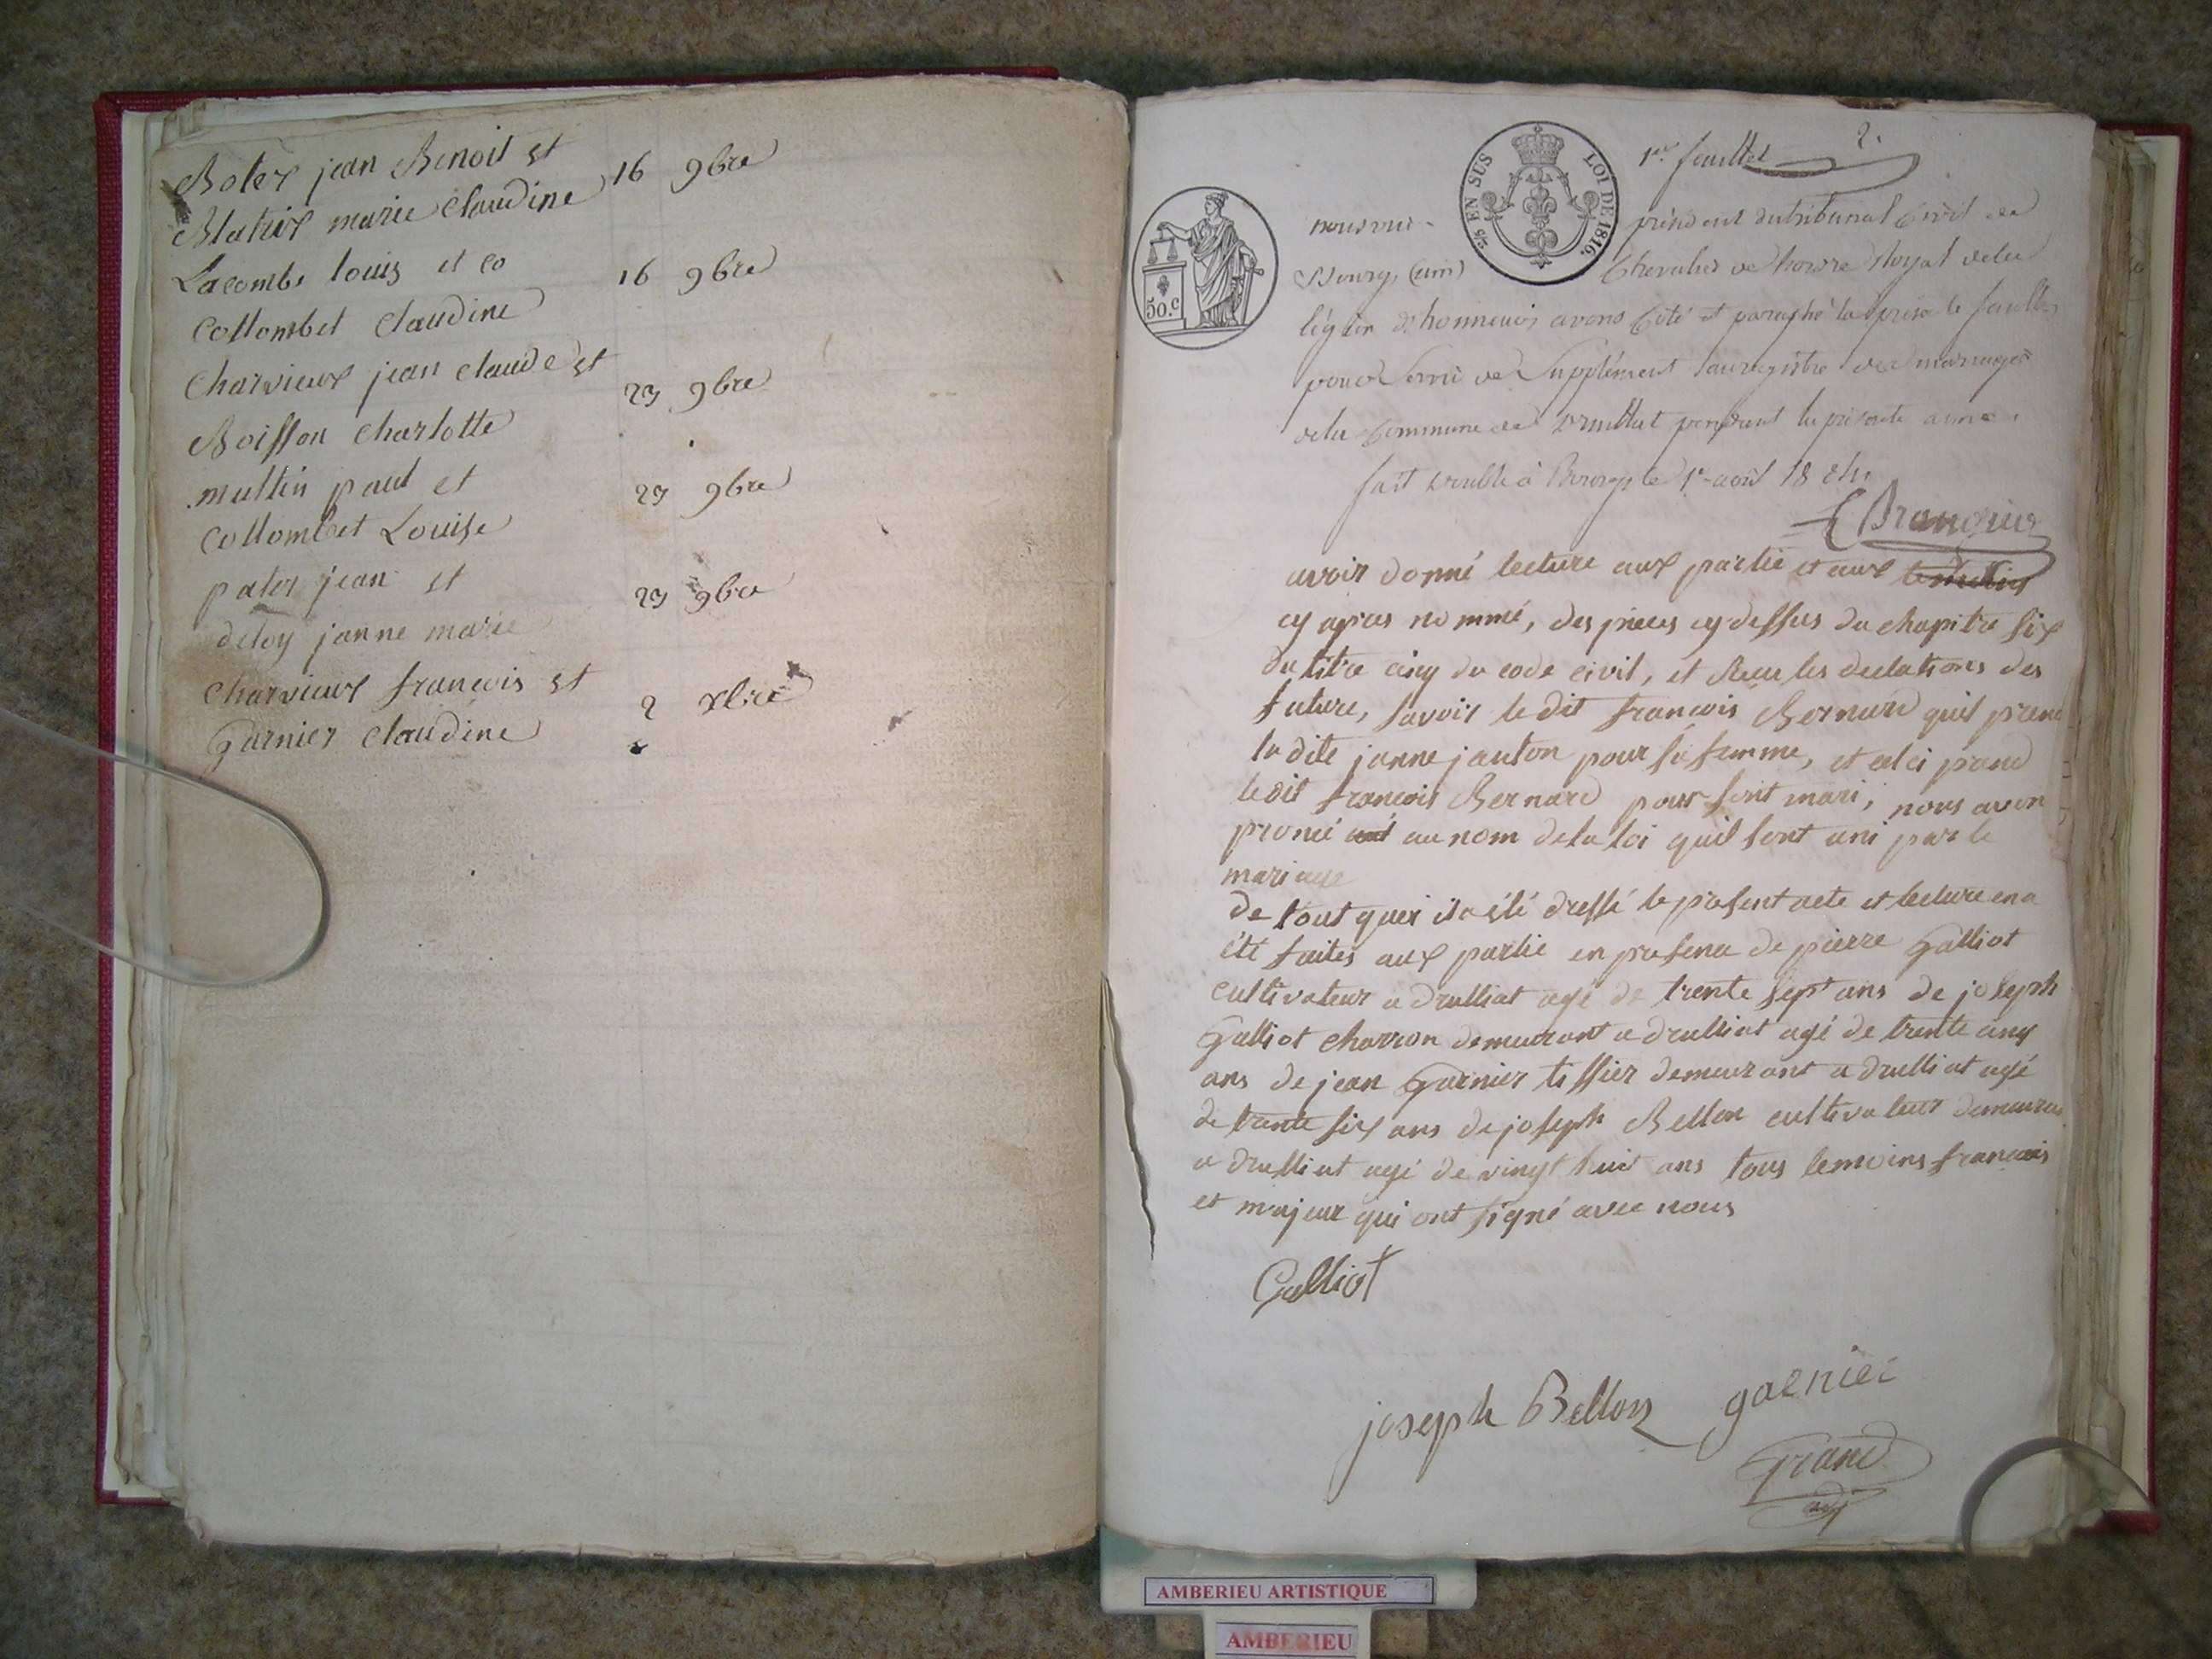 Boter jean Benoit et
Matrix marie claudine 16 9bre
Lacombe louis et co 16 9bre
Collombet claudine
Charvieux jean claude et
Boisson charlotte 23 9bre
multin paul et 23 9bre
Collombet Louise
pater jean et 23 9bre
deloy janne marie
Charvieux francois et 2 xbre
Garnier claudine
1er feuillet 2.
5/6 EN SUS LOI DE 1816.
50.c
nous président du tribunal Civil de
Bourg, (ain) Chevalier de L'ordre Royal de la
légion d'honneur, avons Coté et paraphé la présente feuille
pour servir de Supplément au registre des mariages
de la Commune de Druillat pendant la présente année.
fait double à Bourg le 1er août 18
avoir donné lecture aux partie et aux temoins
cy apres nommé, des pieces cy dessus du chapitre six
du titre cinq du code civil, et Recu les declations des
future, savoir le dit francois Bernard quil prend
la dite janne janton pour sa femme, et celci prand
le dit francois Bernard pour sont mari; nous avon
proncé au nom de la loi quil sont uni par le
mariage
de tout quoi il a été dressé le présent acte et lecture en a
été faites aux partie en presence de pierre Galliot
cultivateur a drulliat agé de trente sept ans de joseph
Galliot charron demeurant a drulliat agé de trente cinq
ans de jean Garnier tissier demeurant a drulliat agé
de trante six ans de joseph Bellon cultivateur demeuran
a drulliat agé de vingt huit ans tous temoins francais
et majeur qui ont signé avec nous
Galliot
joseph Bellon garnier
Grand
AMBERIEU ARTISTIQUE
AMBERIEU